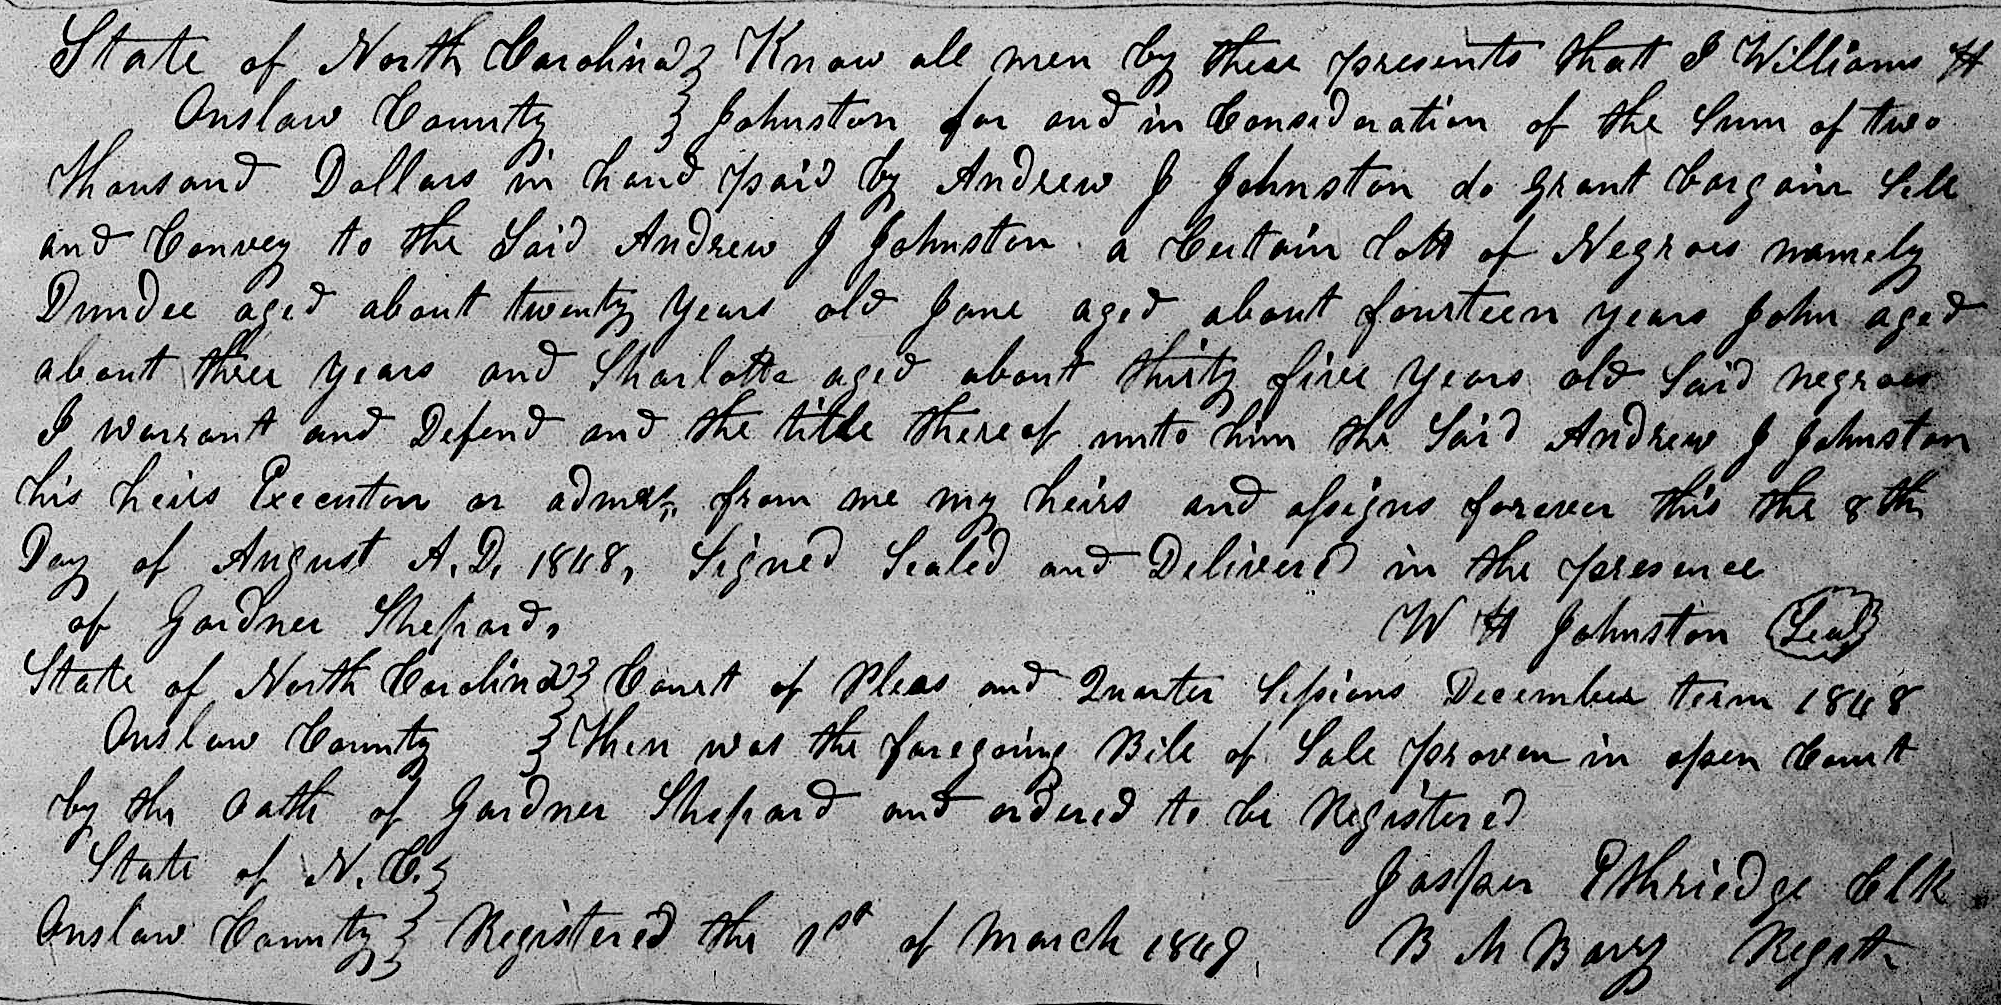 State of North Carolina } Know all men by these presents that I Williams H
Onslow County } Johnston for and in Consideration of the Sum of two
thousand Dollars in hand paid by Andrew J Johnston do grant bargain Sell
and Convey to the Said Andrew J Johnston a Certain Lott of Negroes namely
Dundee aged about twenty years old Jane aged about fourteen years John aged
about three years and Sharlotte aged about thirty five years old Said negroes
I warrant and Defend and the title thereof unto him the Said Andrew J Johnston
his heirs Executon or admrs from me my heirs and assigns forever this the 8th
Day of August A.D. 1848, Signed Sealed and Deliverd in the presence
of Gardner Shepard, W H Johnston (Seal)
State of North Carolina } Court of Pleas and Quarter Sessions December term 1848
Onslow County } Then was the foregoing Bill of Sale proven in open Court
by the oath of Gardner Shepard and ordered to be Registered
State of N. C. } Jasper Ethriedge Clk
Onslow County } Registered the 1st of March 1849. B M Barry Regstr